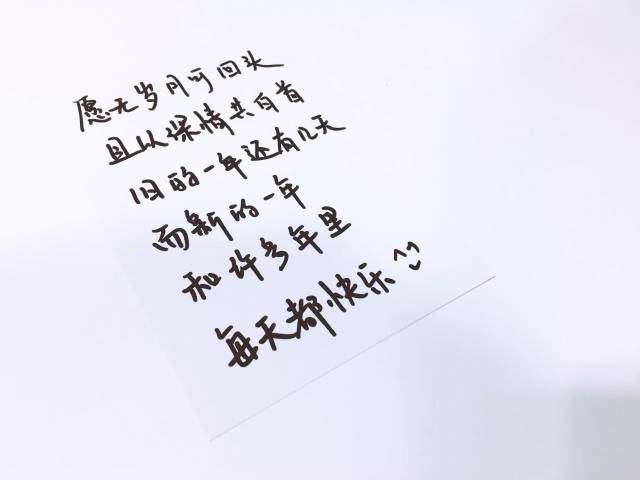 愿无岁月可回头
且以深情共白首
旧的一年还有几天
而新的一年
和许多年里
每天都快乐